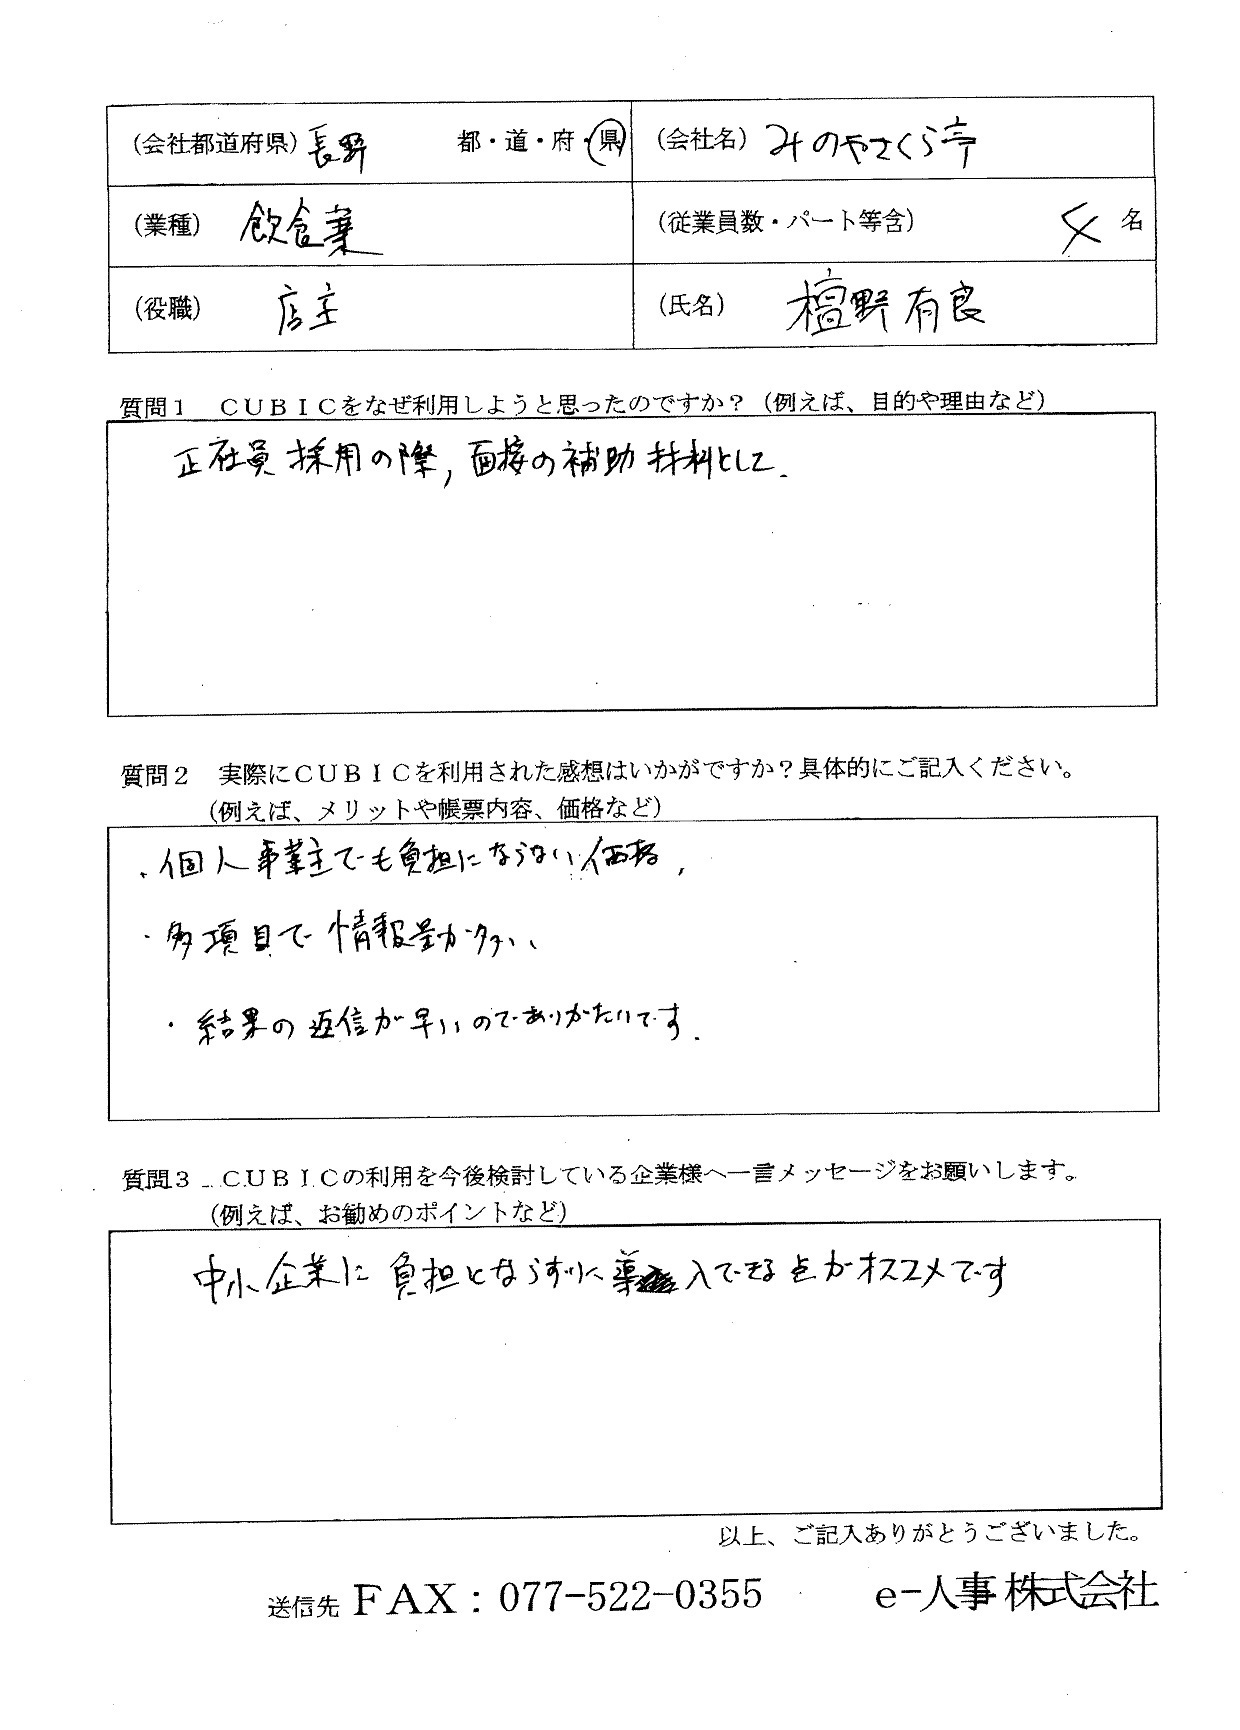 (会社都道府県) 長野 都・道・府・県
(会社名) みのやさくら亭
(業種) 飲食業
(従業員数・パート等含) 4 名
(役職) 店主
(氏名) 檀野 有良
質問1 CUBICをなぜ利用しようと思ったのですか?(例えば、目的や理由など)
正社員 採用の際, 面接の補助材料として.
質問2 実際にCUBICを利用された感想はいかがですか?具体的にご記入ください。
(例えば、メリットや帳票内容、価格など)
・個人事業主でも負担にならない価格,
・多項目で情報量が多い、
・結果の返信が早いのでありがたいです.
質問3 CUBICの利用を今後検討している企業様へ一言メッセージをお願いします。
(例えば、お勧めのポイントなど)
中小企業に負担とならずに導入できる点がオススメです
以上、ご記入ありがとうございました。
送信先 FAX:077-522-0355 e-人事株式会社